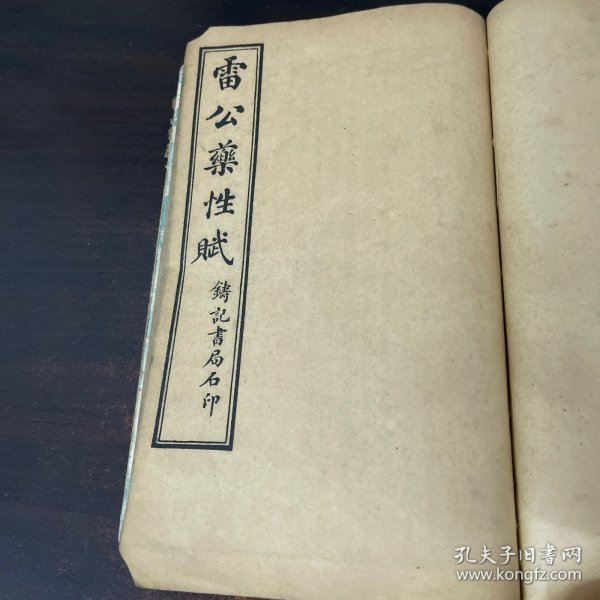 雷公藥性賦
鑄記書局石印
孔夫子旧书网
www.kongfz.com